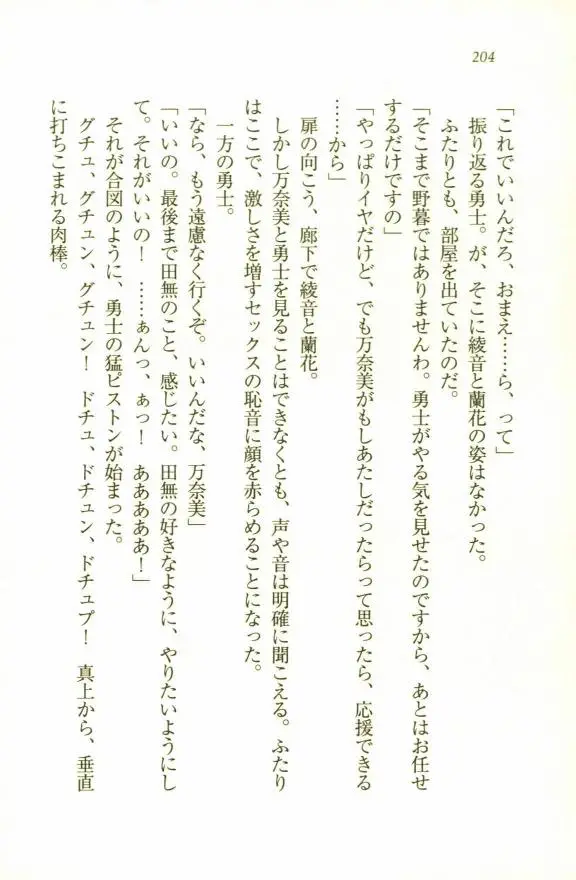 204
「これでいいんだろ、おまえ……ら、って」
振り返る勇士。が、そこに綾音と蘭花の姿はなかった。
ふたりとも、部屋を出ていたのだ。
「そこまで野暮ではありませんわ。勇士がやる気を見せたのですから、あとはお任せ
するだけですの」
「やっぱりイヤだけど、でも万奈美がもしあたしだったらって思ったら、応援できる
……から」
扉の向こう、廊下で綾音と蘭花。
しかし万奈美と勇士を見ることはできなくとも、声や音は明確に聞こえる。ふたり
はここで、激しさを増すセックスの恥音に顔を赤らめることになった。
一方の勇士。
「なら、もう遠慮なく行くぞ。いいんだな、万奈美」
「いいの。最後まで田無のこと、感じたい。田無の好きなように、やりたいようにし
て。それがいいの！　……ぁんっ、ぁっ！　あああああ！」
それが合図のように、勇士の猛ピストンが始まった。
グチュ、グチュン、グチュン！　ドチュ、ドチュン、ドチュプ！　真上から、垂直
に打ちこまれる肉棒。